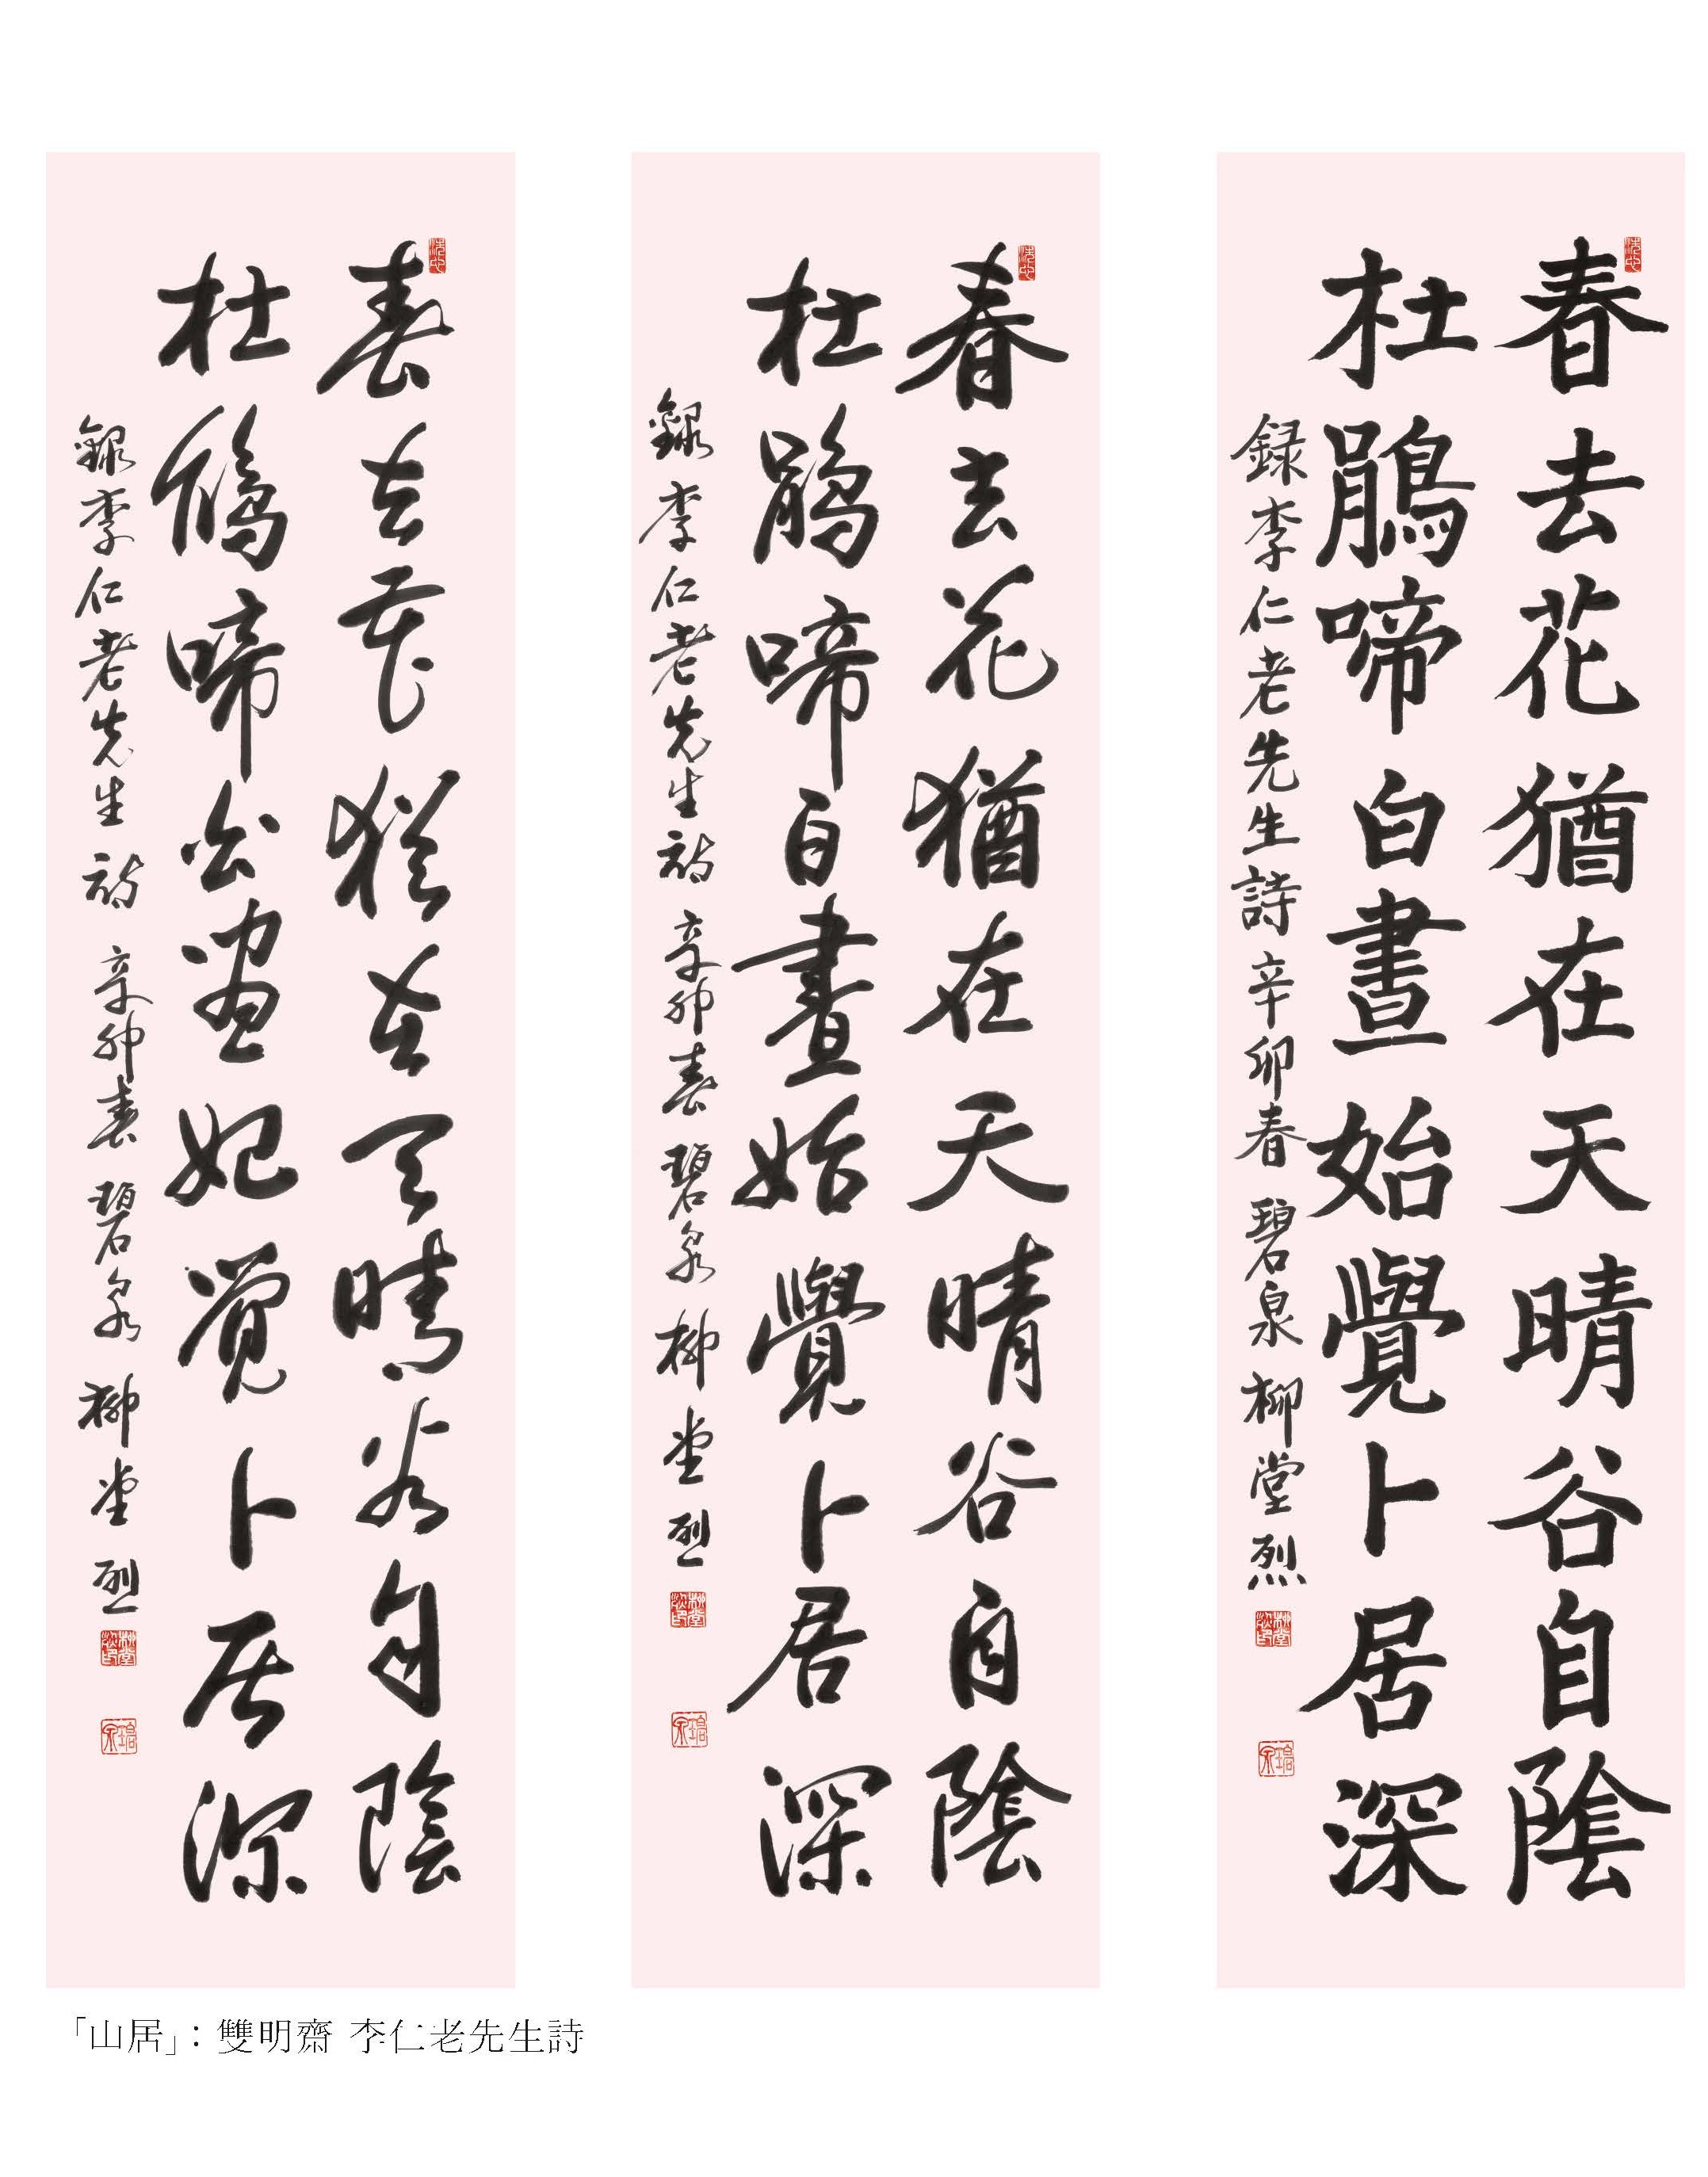 春去花猶在天晴谷自陰
杜鵑啼白晝始覺卜居深
録李仁老先生詩辛卯春碧泉柳堂烈
春去花猶在天晴谷自陰
杜鵑啼白晝始覺卜居深
録李仁老先生詩辛卯春碧泉柳堂烈
春去花猶在天晴谷自陰
杜鵑啼白晝始覺卜居深
録李仁老先生詩辛卯春碧泉柳堂烈
「山居」：雙明齋 李仁老先生詩